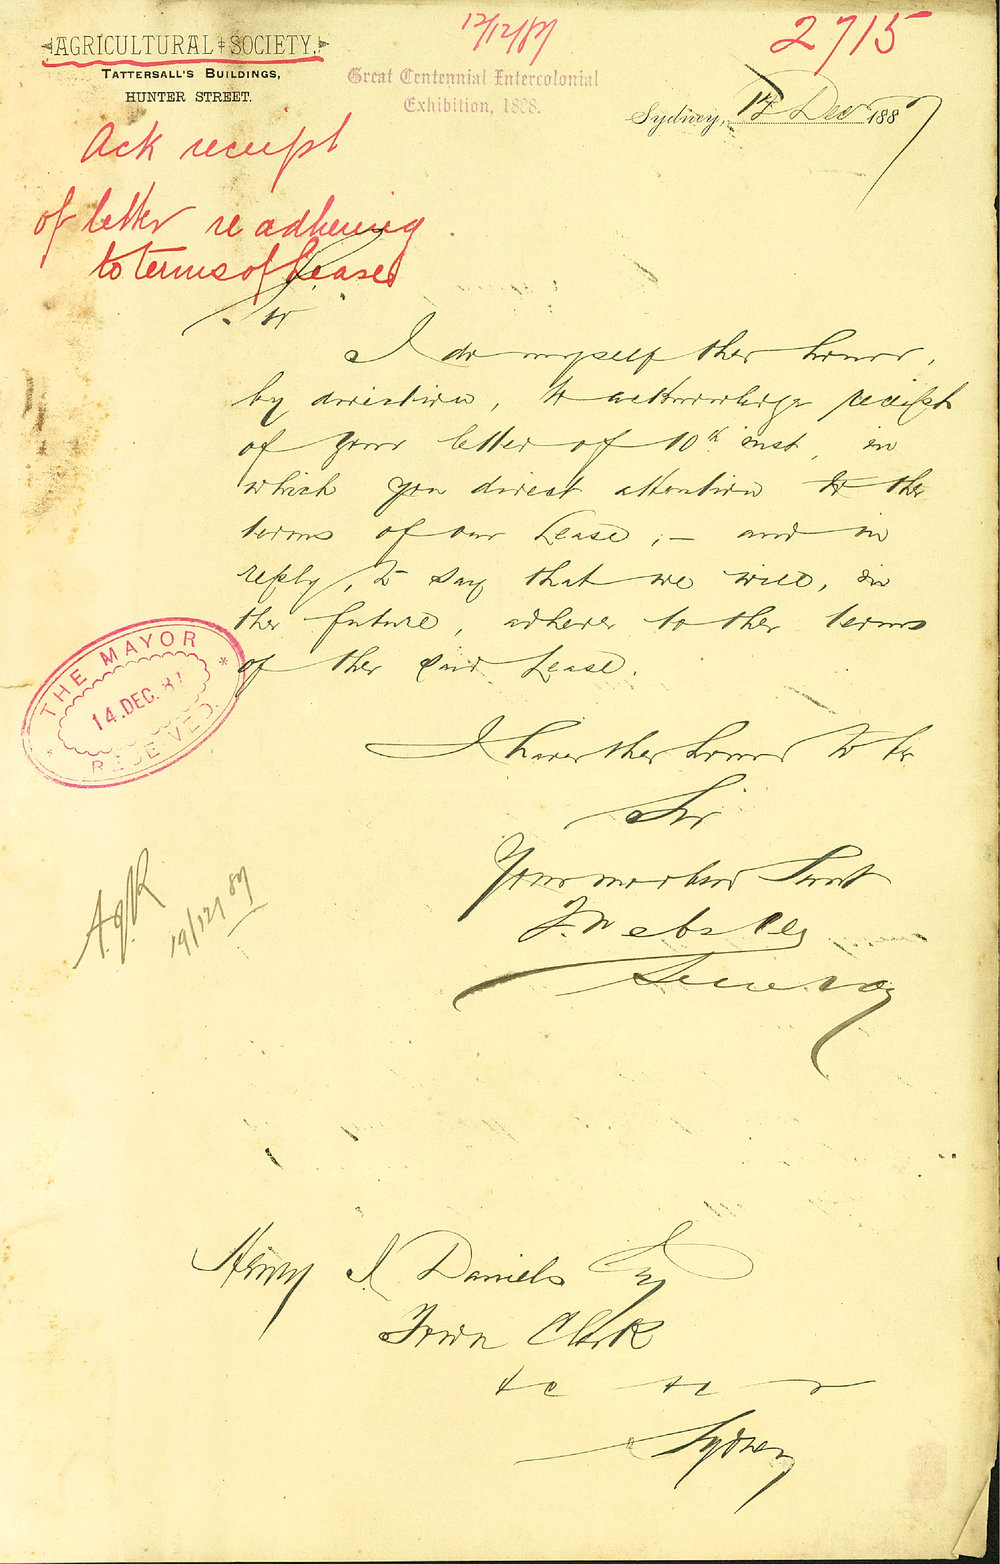 AGRICULTURAL SOCIETY.
TATTERSALL'S BUILDINGS,
HUNTER STREET.
12/12/87
2715
Great Centennial Intercolonial
Exhibition, 1888.
Sydney, 12 Dec 1887
Ack receipt
of letter re adhering
to terms of Lease
Sir
I do myself the honor,
by direction, to acknowledge receipt
of your letter of 10th inst, in
which you direct attention to the
terms of our Lease; — and in
reply, to say that we will, in
the future, adhere to the terms
of the said Lease.
THE MAYOR
14. DEC. 87
RECEIVED.
I have the honor to be
Sir
Your most obed Servt
F. Webster
Secretary
19/12/87
Henry J. Daniels Esq
Town Clerk
&c &c
Sydney